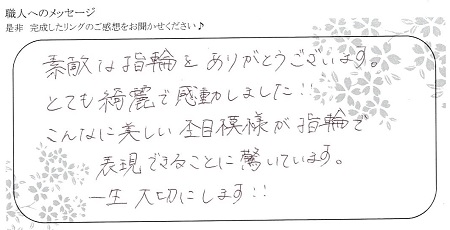 職人へのメッセージ
是非 完成したリングのご感想をお聞かせください♪
素敵な指輪をありがとうございます。
とても綺麗で感動しました!!
こんなに美しい杢目模様が指輪で
表現できることに驚いています。
一生大切にします!!